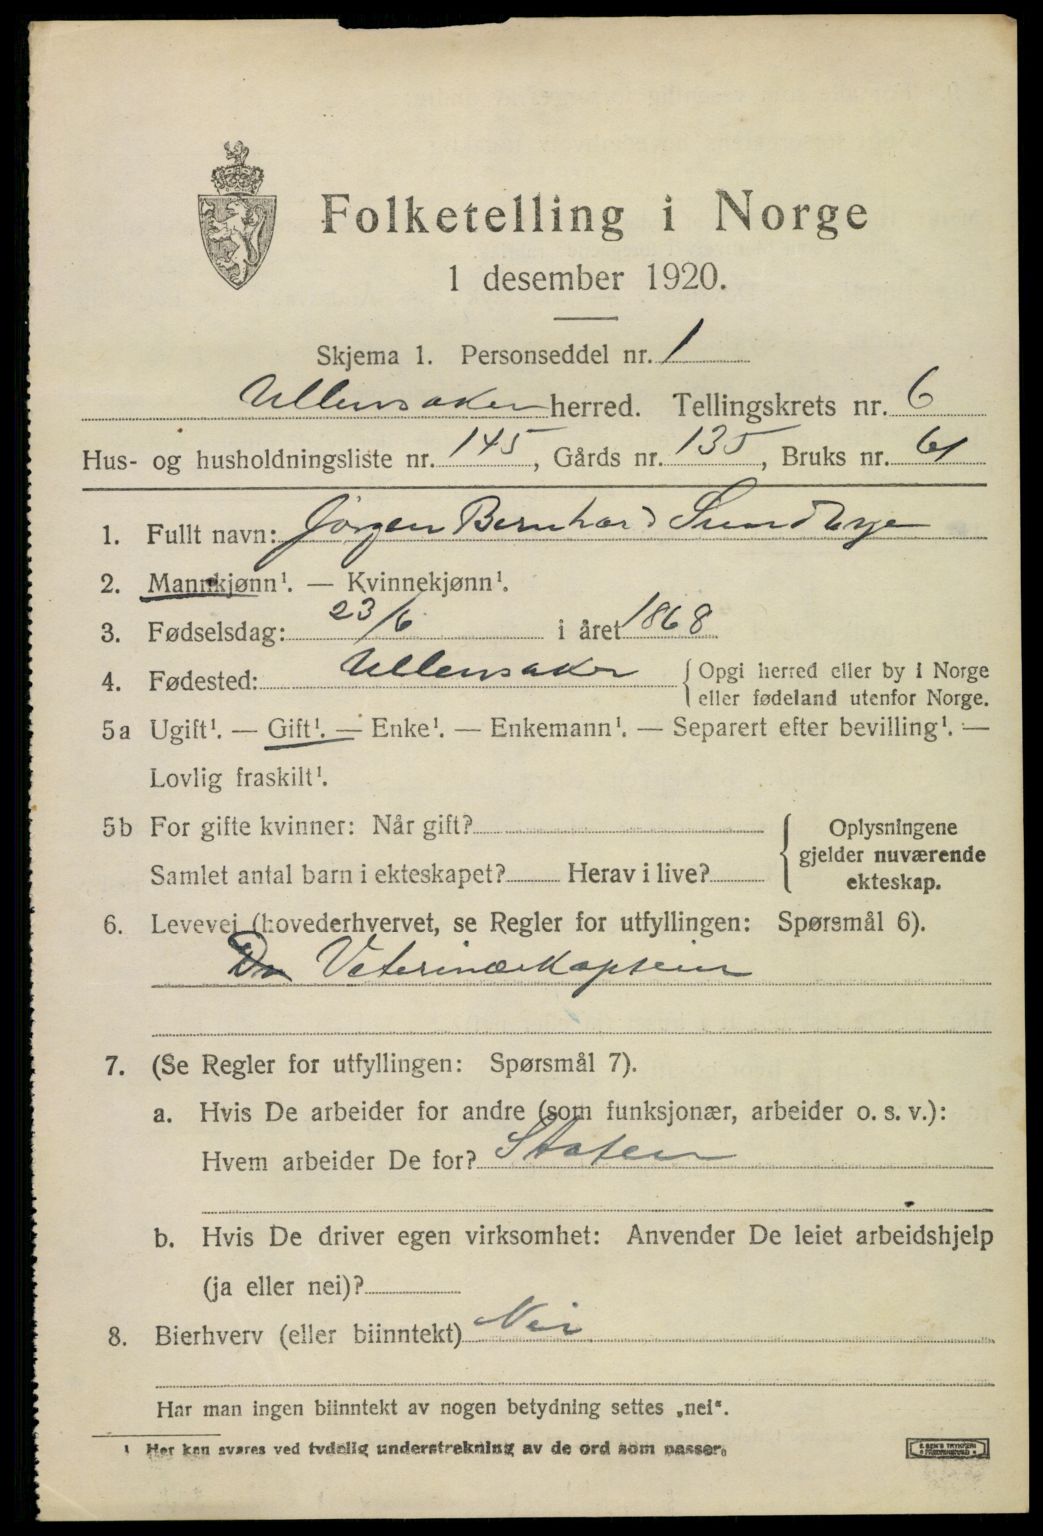 Folketelling i Norge
1 desember 1920.
Skjema 1. Personseddel nr. 1
Ullensaker herred. Tellingskrets nr. 6
Hus- og husholdningsliste nr. 145, Gårds nr. 135, Bruks nr. 61
1. Fullt navn: Jørgen Bernhard Sundbye
2. Mannkjønn¹. — Kvinnekjønn¹.
3. Fødselsdag: 23/6 i året 1868
4. Fødested: Ullensaker { Opgi herred eller by i Norge
eller fødeland utenfor Norge.
5a Ugift¹. — Gift¹. — Enke¹. — Enkemann¹. — Separert efter bevilling¹. —
Lovlig fraskilt¹.
5b For gifte kvinner: Når gift?
Samlet antal barn i ekteskapet? Herav i live?
Oplysningene
gjelder nuværende
ekteskap.
6. Levevei (hovederhvervet, se Regler for utfyllingen: Spørsmål 6).
Veterinærkaptein
7. (Se Regler for utfyllingen: Spørsmål 7).
a. Hvis De arbeider for andre (som funksjonær, arbeider o. s. v.):
Hvem arbeider De for? Staten
b. Hvis De driver egen virksomhet: Anvender De leiet arbeidshjelp
(ja eller nei)?
8. Bierhverv (eller biinntekt) Nei
Har man ingen biinntekt av nogen betydning settes „nei".
¹ Her kan svares ved tydelig understrekning av de ord som passer.